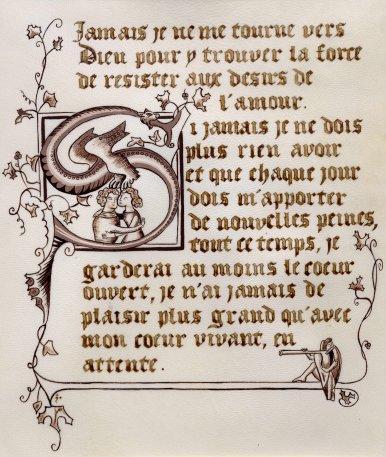 Jamais je ne me tourne vers
Dieu pour y trouver la force
de resister aux desirs de
l'amour.
Si jamais je ne dois
plus rien avoir
et que chaque jour
dois m'apporter
de nouvelles peines,
tout ce temps, je
garderai au moins le coeur
ouvert, je n'ai jamais de
plaisir plus grand qu'avec
mon coeur vivant, en
attente.